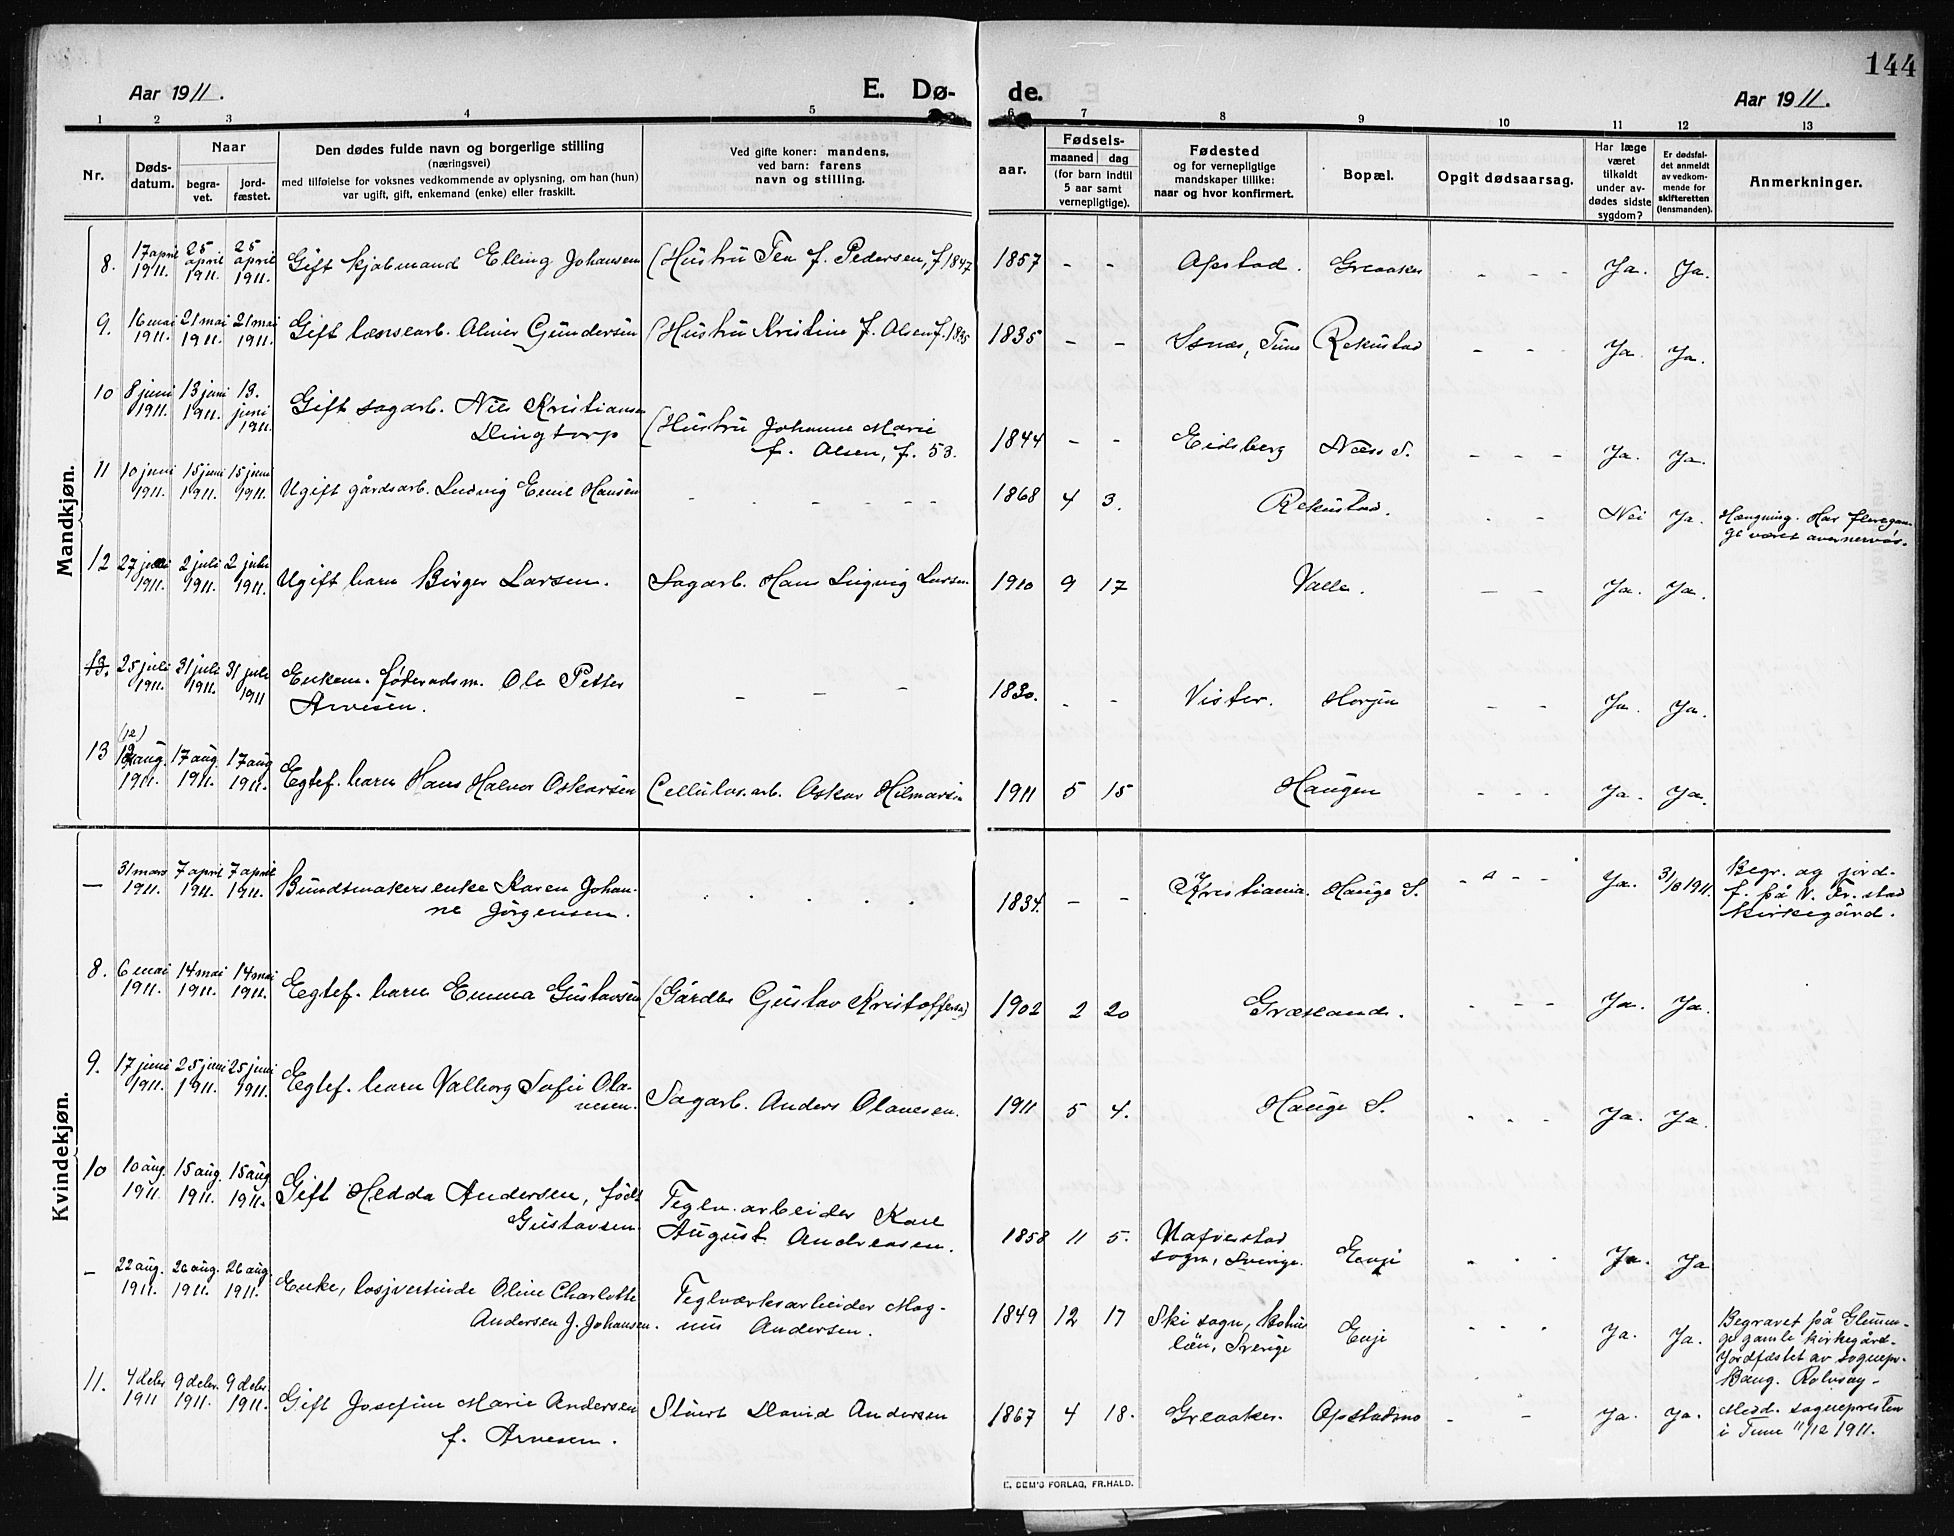 144
Aar 1911.
E. Dø-
de.
Aar 1911.
1 2 3 4 5 6 7 8 9 10 11 12 13
Nr.
Døds-
datum.
Naar
begra-
vet.
jord-
fæstet.
Den dødes fulde navn og borgerlige stilling
(næringsvei)
med tilføielse for voksnes vedkommende av oplysning, om han (hun)
var ugift, gift, enkemand (enke) eller fraskilt.
Ved gifte koner: mandens,
ved barn: farens
navn og stilling.
aar.
Fødsels-
maaned dag
(for barn indtil
5 aar samt
vernepligtige).
Fødested
og for vernepligtige
mandskaper tillike:
naar og hvor konfirmert.
Bopæl.
Opgit dødsaarsag.
Har læge
været
tilkaldt
under av-
dødes sidste
sygdom?
Er dødsfal-
det anmeldt
av vedkom-
mende for
skifteretten
(lensmanden).
Anmerkninger.
Mandkjøn.
8. 17 april 1911. 25 april 1911. 25 april 1911. Gift kjøbmand Elling Johansen (Hustru Tea f. Pedersen, f. 1847 1857 - - Opstad. Greaaker - - - Ja. Ja.
9. 16 mai 1911. 21 mai 1911. 21 mai 1911. Gift lænsearb. Oliver Gundersen (Hustru Kristine f. Olsen f. 1835 1835 - - Tune Rekustad - - - Ja. Ja.
10 8 juni 1911. 13 juni 1911. 13. juni 1911. Gift sagarb. Nils Kristiansen
Dingtorp (Hustru Johanne Marie
f. Olsen, f. 53. 1844 - - Eidsberg Næss S. - - - Ja. Ja.
11 10 juni 1911. 15 juni 1911. 15 juni 1911. Ugift gårdsarb. Ludvig Emil Hansen - - - - 1868 4 3. Rekustad. - - Nei Ja. Hængning. Har flere gan-
ge været nervøs.
12 27 1911. 2 juli 1911. 2 juli 1911. Ugift barn Birger Larsen. Sagarb. Hans Ludvig Larsen 1910 9 17 Valle. - - Ja. Ja.
13. 25 juli 1911. 31 juli 1911. 31 juli 1911 Enkem. føderadsm. Ole Petter
Arvesen. - - - 1830. - - Vister. Horjen - - Ja. Ja.
13 (12) aug. 1911. 17 aug. 1911. 17 aug 1911. Egtef. barn Hans Halvor Oskarsen Cellulos.arb. Oskar Hilmarsen 1911 5 15 Haugen - - - Ja. Ja.
Kvindekjøn.
— 31 mars 1911. 7 april 1911. 7 april 1911. Bundtmakersenke Karen Johan-
ne Jørgensen. - - - - 1834. - - Kristiania. Hauge S. - - - Ja. 31/3 1911. Begr. og jord-
f. på V. Fr.stad
kirkegård.
8. 6 mai 1911. 14 mai 1911. 14 mai 1911. Egtef. barn Emma Gustavsen (Gårdbr. Gustav Kristoffersen) 1902 2 20 Græsland. - - - Ja. Ja.
9. 17 juni 1911. 25 juni 1911. 25 juni 1911. Egtef. barn Valborg Sofie Ola-
vesen. Sagarb. Anders Olavesen. 1911 5 4. Hauge S. - - - Ja. Ja.
10 10 aug. 1911. 15 aug. 1911. 15 aug 1911. Gift Hedda Andersen, født
Gustavsen. Teglv.arbeider Karl
August Andreasen. 1858 11 5. Nafverstad
sogn, Sverige. Evje - - - Ja. Ja
— 22 aug. 1911. 26 aug. 1911. 26 aug 1911. Enke, losjvertinde Oline Charlotte
Andersen f. Johansen. Teglværksarbeider Mag-
nus Andersen. 1849 12 17 Ski sogn, Bohus
län, Sverige Evje - - - Ja. Ja. Begravet på Glemm-
ge gamle kirkegård.
Jordfæstet av sognepr.
Bang. Rolvsøy -
11. 4 debr 1911 9 debr. 1911. 9 debr. 1911. Gift Josefine Marie Andersen
f. Arvesen. Stuert David Andersen 1867 4 18. Greaaker. Opstadmo - - Ja. Ja. Medd. sognepresten
i Tune 11/12 1911.
E. SEM'S FORLAG, FR.HALD.